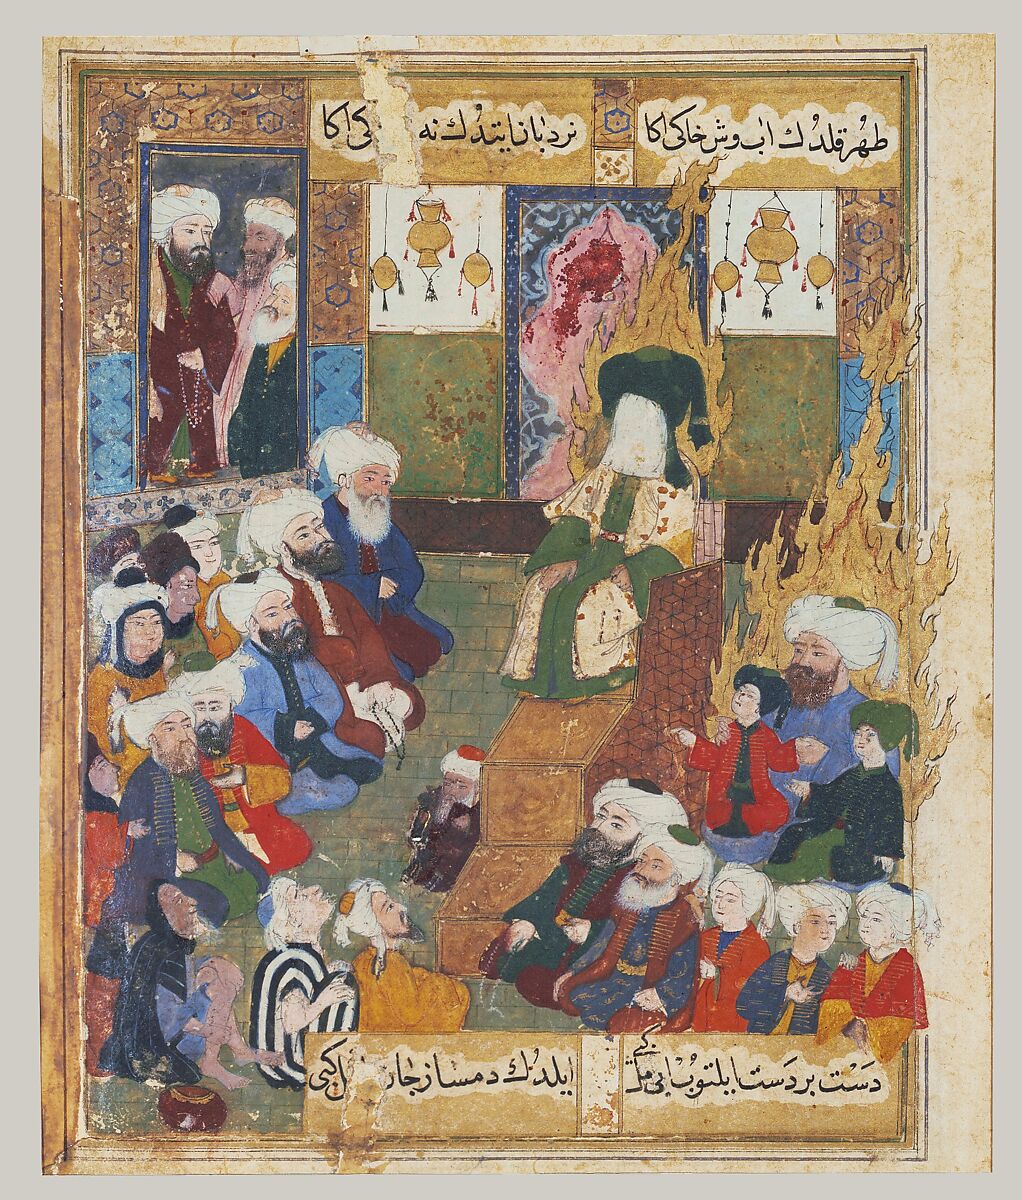 طهر قلدك اب وش خاكی اكا
نردبان ایتدك نه كی اكا
دست بر دست ایلتوب انی
ایلدك دمساز جان ایكی